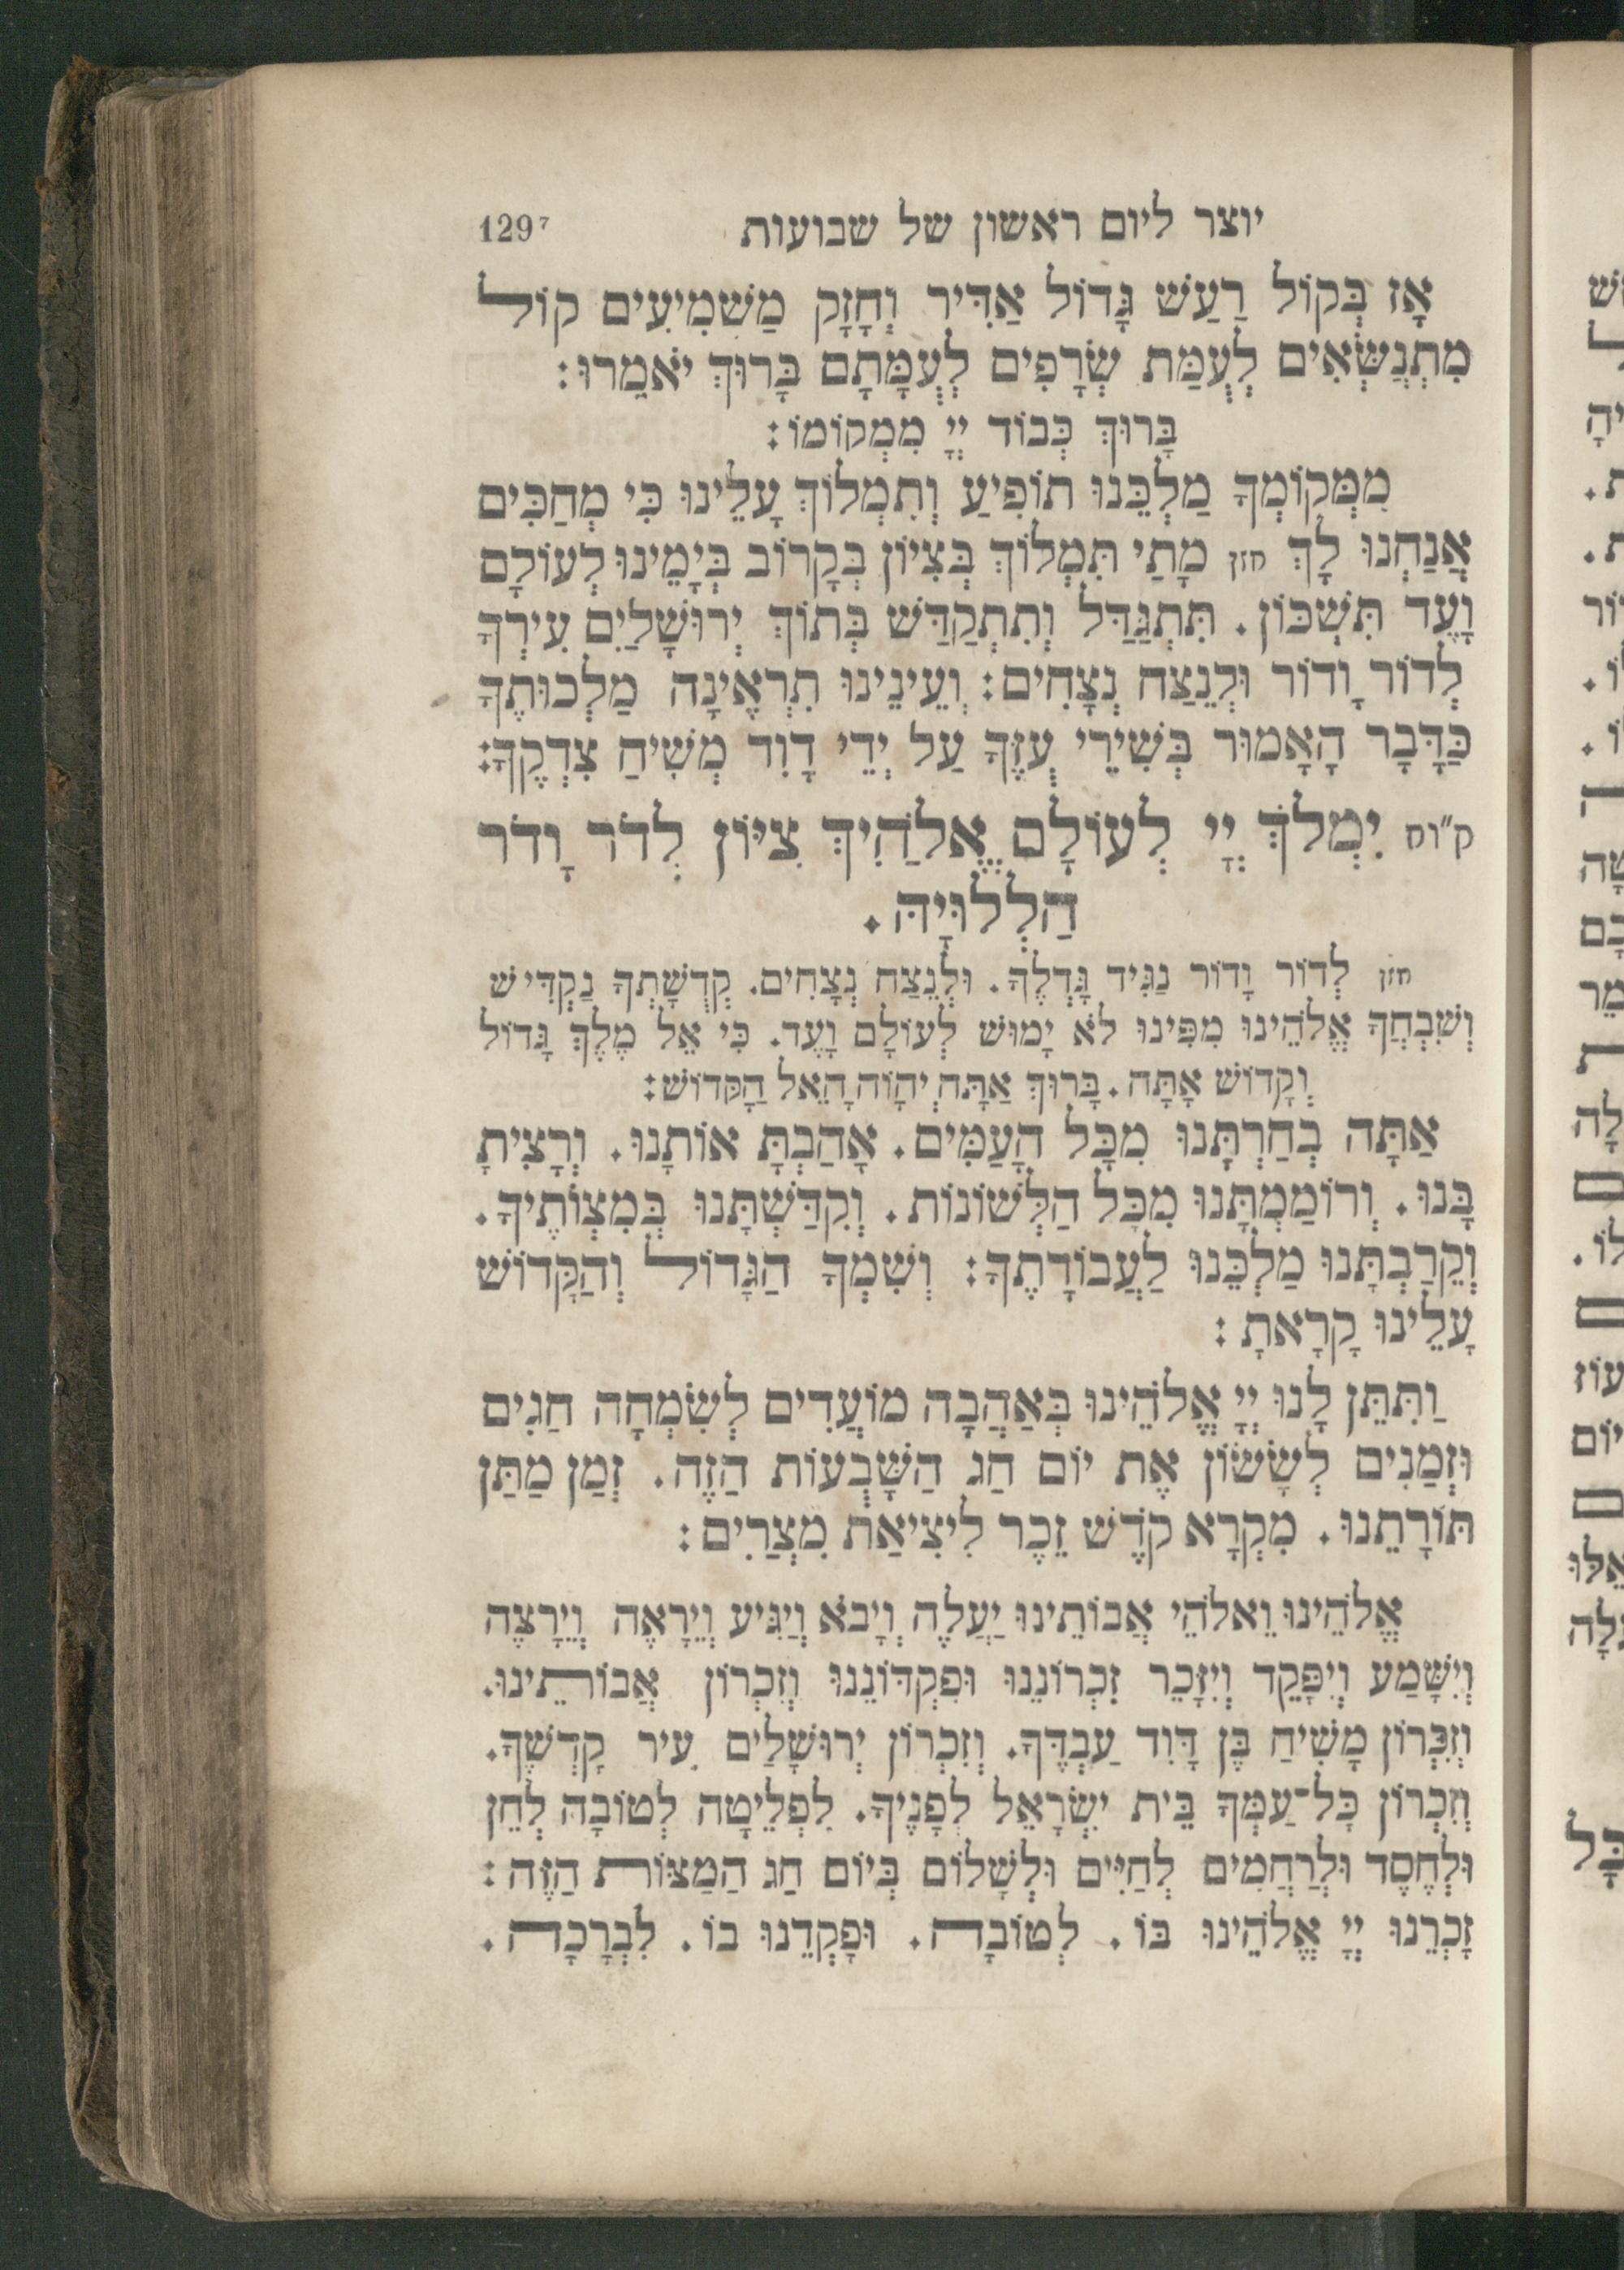 יוצר ליום ראשון של שבועות 129⁷
אָז בְּקוֹל רַעַשׁ גָּדוֹל אַדִּיר וְחָזָק מַשׁמִיעִים קוֹל
מִתְנַשְּׂאִים לְעֻמַּת שְׂרָפִים לְעֻמָּתָם בָּרוּךְ יֹאמֵרוּ׃
בָּרוּךְ כְּבוֹד יְיָ מִמְקוֹמוֹ׃
מִמְּקוֹמְךָ מַלְכֵּנוּ תוֹפִיעַ וְתִמְלוֹךְ עָלֵינוּ כִּי מְחַכִּים
אֲנַחְנוּ לָךְ חזן מָתַי תִּמְלוֹךְ בְּצִיוֹן בְּקָרוֹב בְּיָמֵינוּ לְעוֹלָם
וָעֶד תִּשְׁכּוֹן. תִּתְגַּדַּל וְתִתְקַדַּשׁ בְּתוֹךְ יְרוּשָׁלַיִם עִירְךָ
לְדוֹר וָדוֹר וּלְנֵצַח נְצָחִים׃ וְעֵינֵינוּ תִרְאֶינָה מַלְכוּתֶךָ
כַּדָּבָר הָאָמוּר בְּשִׁירֵי עֻזֶּךָ עַל יְדֵי דָוִד מְשִׁיחַ צִדְקֶךָ׃
ק״וח יִמְלֹךְ יְיָ לְעוֹלָם אֱלֹהַיִךְ צִיּוֹן לְדֹר וָדֹר
הַלְלוּיָהּ.
חזן לְדוֹר וָדוֹר נַגִּיד גָּדְלֶךָ. וּלְנֵצַח נְצָחִים. קְדֻשָּׁתְךָ נַקְדִּישׁ
וְשִׁבְחֲךָ אֱלֹהֵינוּ מִפִּינוּ לֹא יָמוּשׁ לְעוֹלָם וָעֶד. כִּי אֵל מֶלֶךְ גָּדוֹל
וְקָדוֹשׁ אָתָּה. בָּרוּךְ אַתָּה יְהוָֹה הָאֵל הַקָּדוֹשׁ׃
אַתָּה בְחַרְתָּנוּ מִכָּל הָעַמִּים. אָהַבְתָּ אוֹתָנוּ. וְרָצִיתָ
בָּנוּ. וְרוֹמַמְתָּנוּ מִכָּל הַלְּשׁוֹנוֹת. וְקִדַּשְׁתָּנוּ בְּמִצְוֹתֶיךָ.
וְקֵרַבְתָּנוּ מַלְכֵּנוּ לַעֲבוֹדָתֶךָ׃ וְשִׁמְךָ הַגָּדוֹל וְהַקָּדוֹשׁ
עָלֵינוּ קָרָאתָ׃
וַתִּתֵּן לָנוּ יְיָ אֱלֹהֵינוּ בְּאַהֲבָה מוֹעֲדִים לְשִׂמְחָה חַגִים
וּזְמַנִים לְשָׂשׂוֹן אֶת יוֹם חַג הַשָּׁבְעוֹת הַזֶה. זְמַן מַתַּן
תּוֹרָתֵנוּ. מִקְרָא קֹדֶשׁ זֵכֶר לִיצִיאַת מִצְרַיִם׃
אֱלֹהֵינוּ וֵאלֹהֵי אֲבוֹתֵינוּ יַעֲלֶה וְיָבֹא וְיַגִּיע וְיֵרָאֶה וְיֵרָצֶה
וְיִשָּׁמַע וְיִפָּקֵד וְיִזָּכֵר זִכְרוֹנֵנוּ וּפִקְדּוֹנֵנוּ וְזִכְרוֹן אֲבוֹתֵינוּ.
וְזִכְּרוֹן מָשִׁיחַ בֶּן דָּוִד עַבְדֶּךָ. וְזִכְרוֹן יְרוּשָׁלַיִם עִיר קָדְשֶׁךָ.
וְזִכְרוֹן כָּל־עַמְּךָ בֵּית יִשְׂרָאֵל לְפָנֶיךָ. לִפְלֵיטָה לְטוֹבָה לְחֵן
וּלְחֶסֶד וּלְרַחֲמִים לְחַיִּים וּלְשָׁלוֹם בְּיוֹם חַג הַמַצּוֹת הַזֶּה׃
זָכְרֵנוּ יְיָ אֱלֹהֵינוּ בּוֹ. לְטוֹבָה. וּפָקְדֵנוּ בוֹ. לִבְרָכָה.